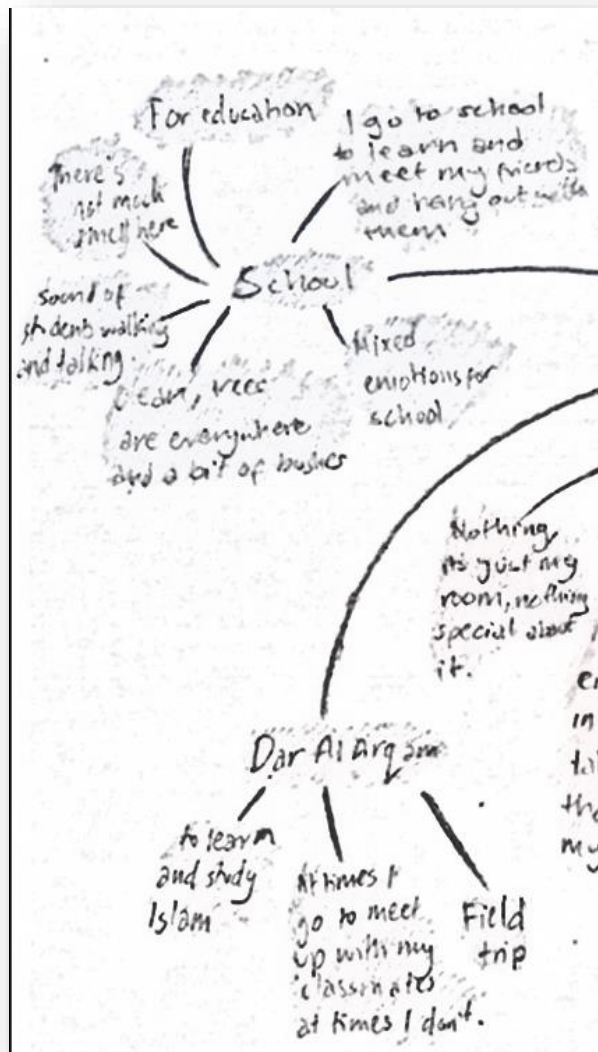 For education
I go to school
to learn and
meet my friends
and hang out with
them
There's
not much
smell here
School
sound of
students walking
and talking
Mixed
emotions for
school
Clean, trees
are everywhere
and a bit of bushes
Nothing,
its just my
room, nothing
special about
it.
Dar Al Arqam
to learn
and study
Islam
At times I
go to meet
up with my
classmates
at times I don't.
Field
trip
in
my